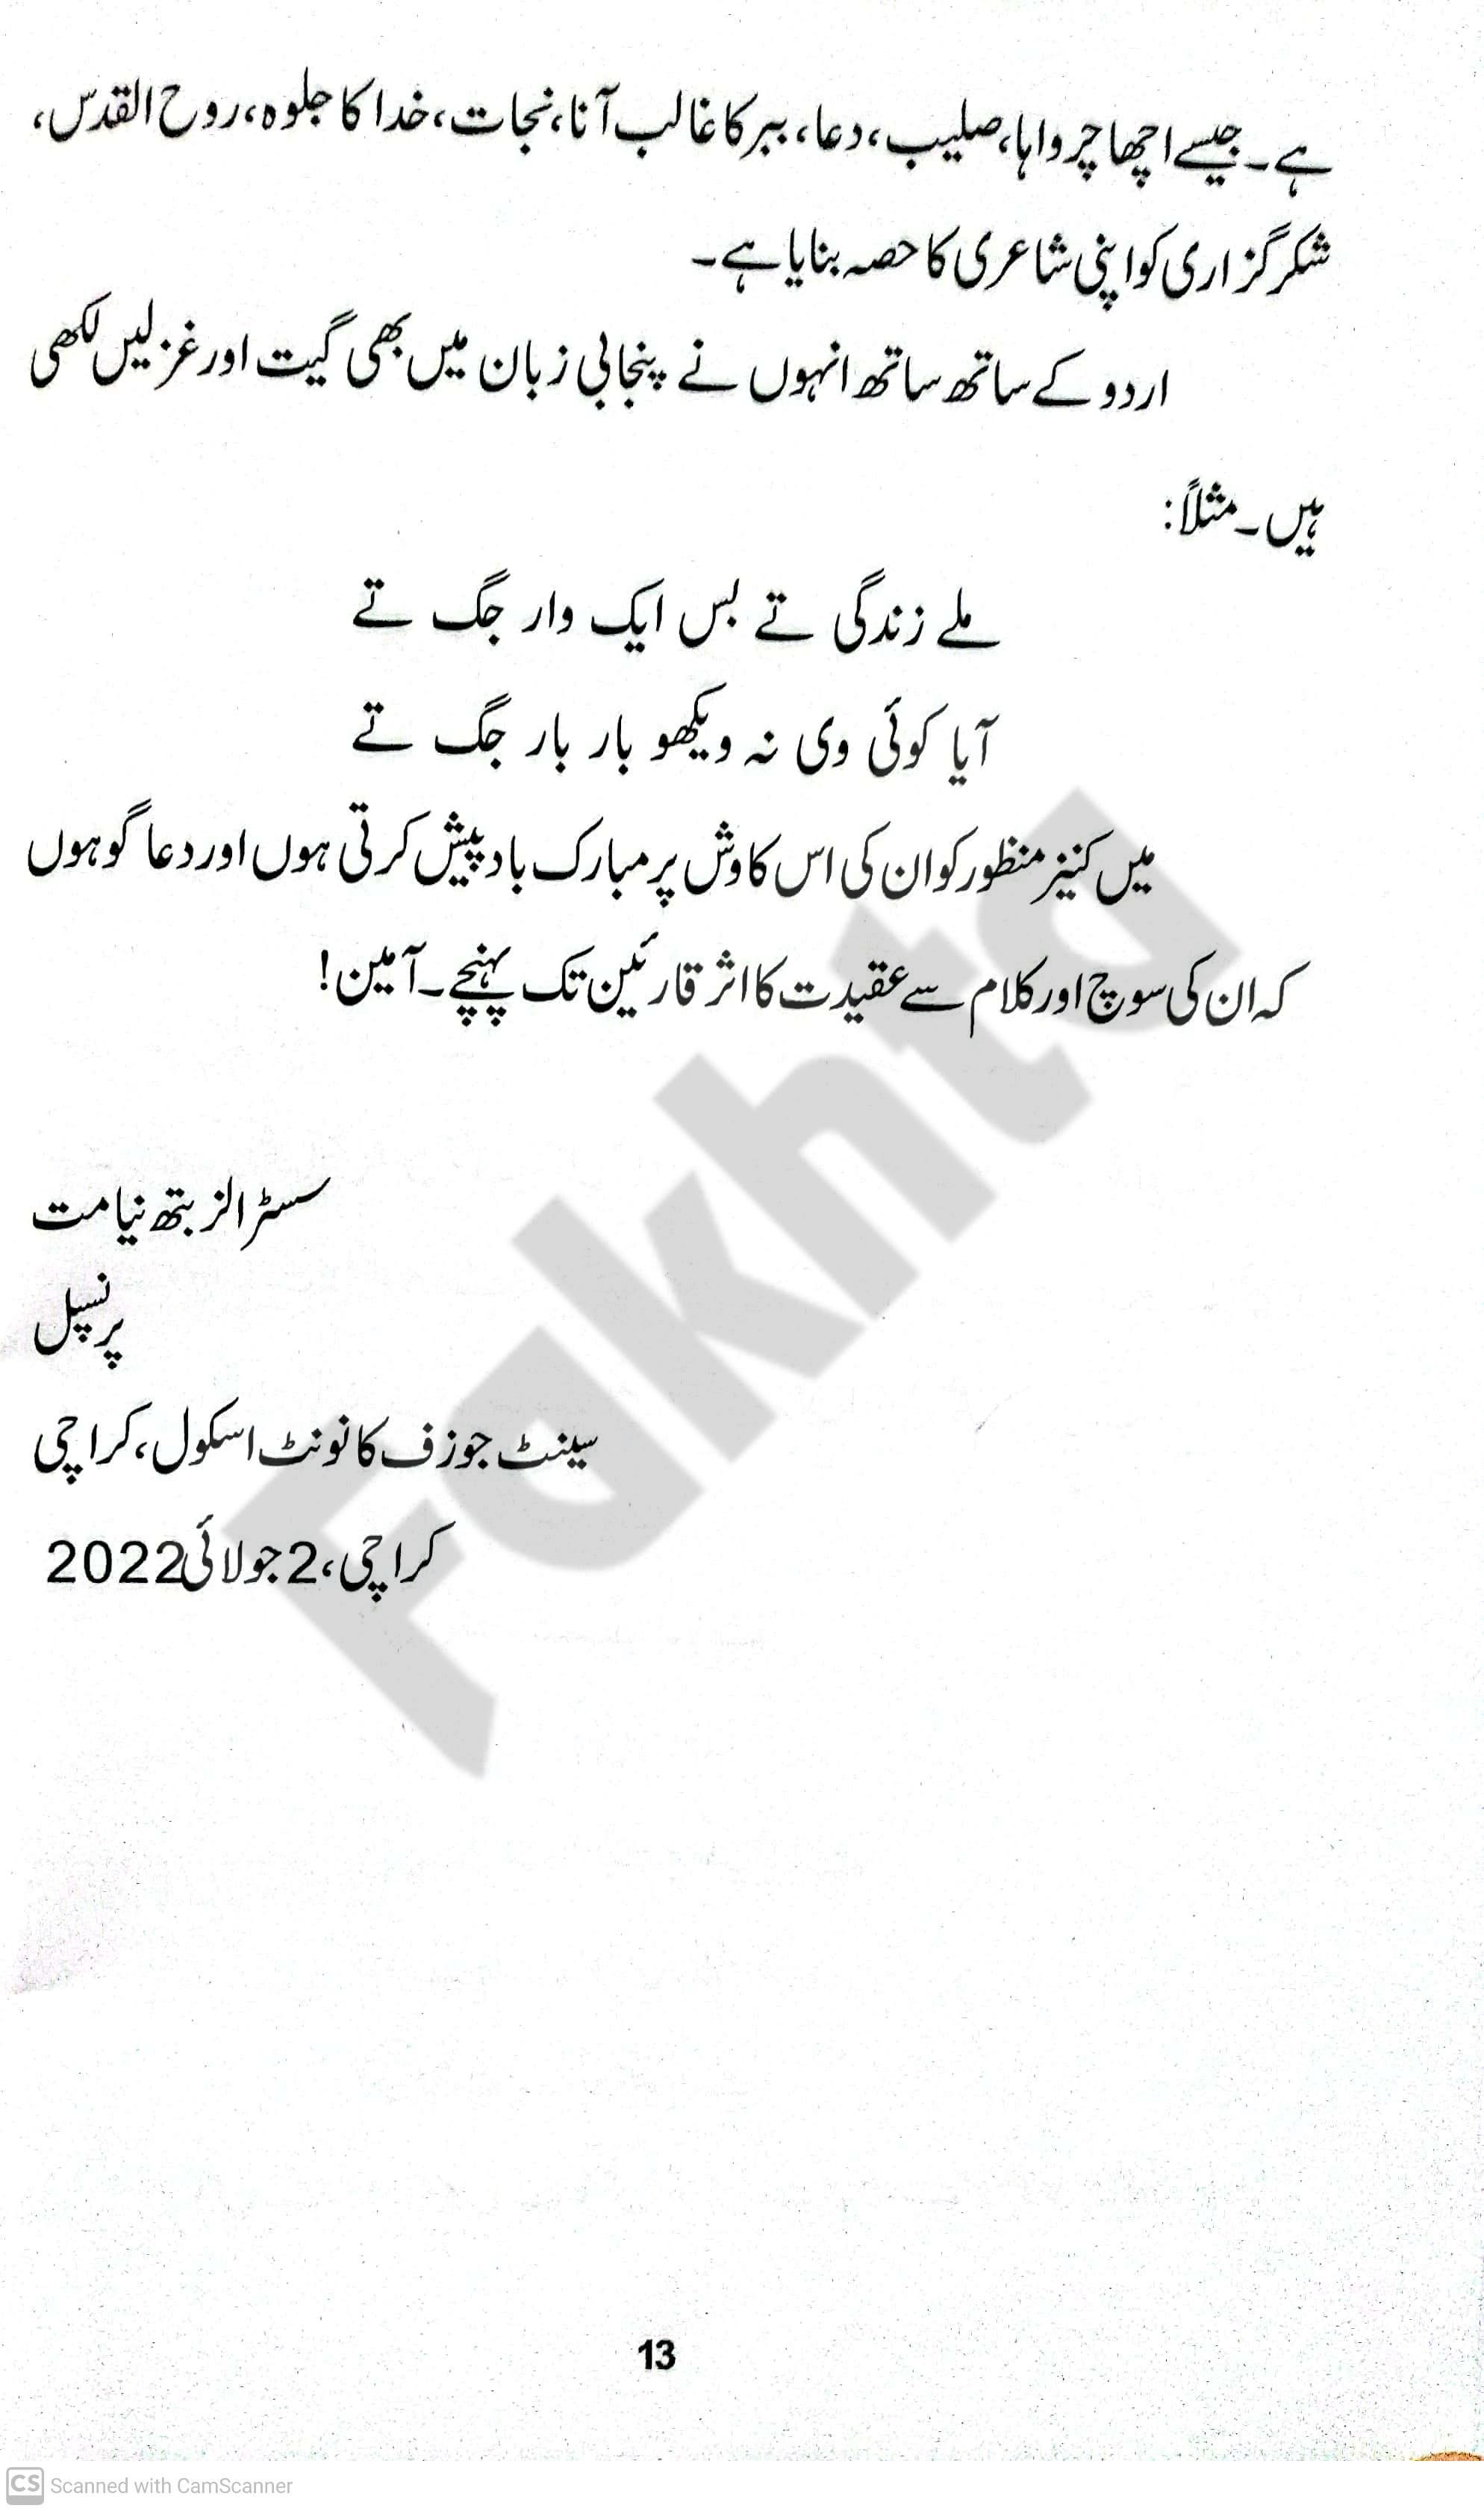 ہے۔ جیسے اچھا چرواہا، صلیب، دعا، ببر کا غالب آنا، نجات، خدا کا جلوہ، روح القدس،
شکر گزاری کو اپنی شاعری کا حصہ بنایا ہے۔
اردو کے ساتھ ساتھ انہوں نے پنجابی زبان میں بھی گیت اور غزلیں لکھی
ہیں۔ مثلاً:
ملے زندگی تے بس ایک وار جگ تے
آیا کوئی وی نہ ویکھو بار بار جگ تے
میں کنیز منظور کو ان کی اس کاوش پر مبارک باد پیش کرتی ہوں اور دعا گو ہوں
کہ ان کی سوچ اور کلام سے عقیدت کا اثر قارئین تک پہنچے۔ آمین!
سسٹر الزبتھ نیامت
پرنسپل
سینٹ جوزف کانونٹ اسکول، کراچی
کراچی، 2 جولائی 2022
Fakhta
13
CS Scanned with CamScanner